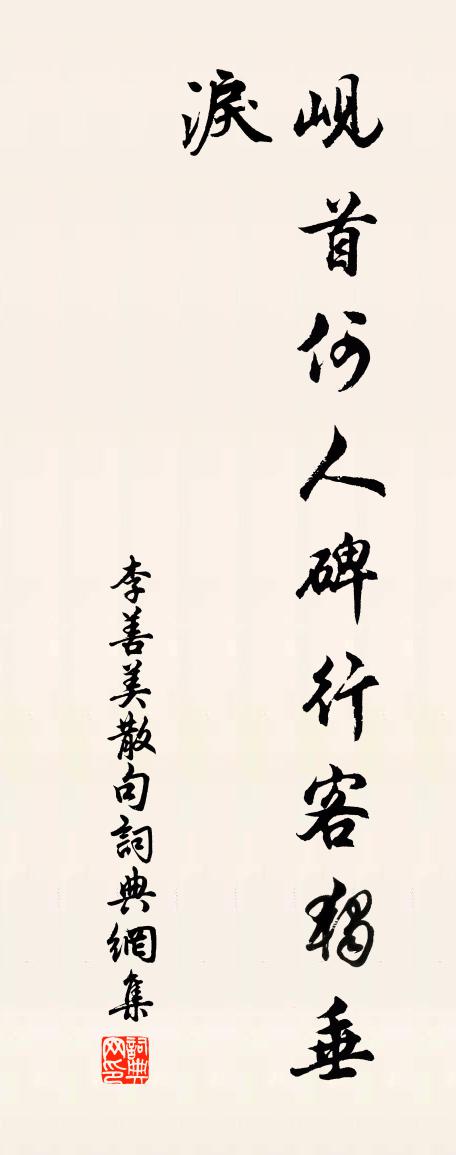 峴首何人碑行客獨垂
淚
李善美散句詞典網集
詞典
网印